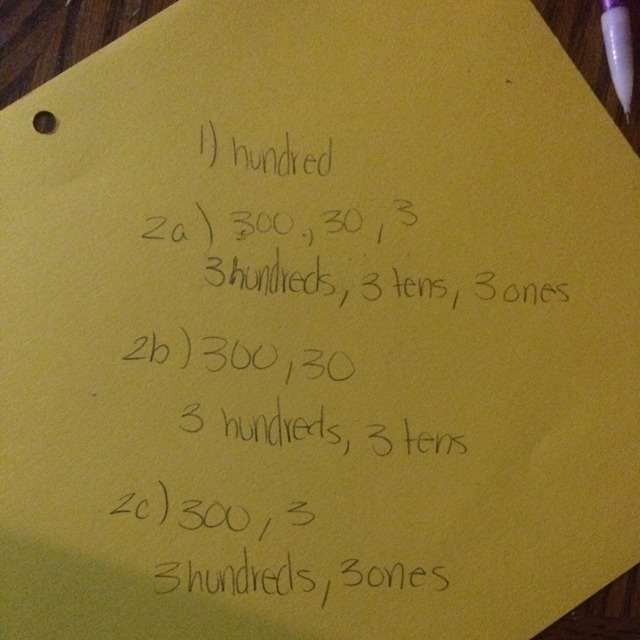 1) hundred
2a) 300, 30, 3
3 hundreds, 3 tens, 3 ones
2b) 300, 30
3 hundreds, 3 tens
2c) 300, 3
3 hundreds, 3 ones